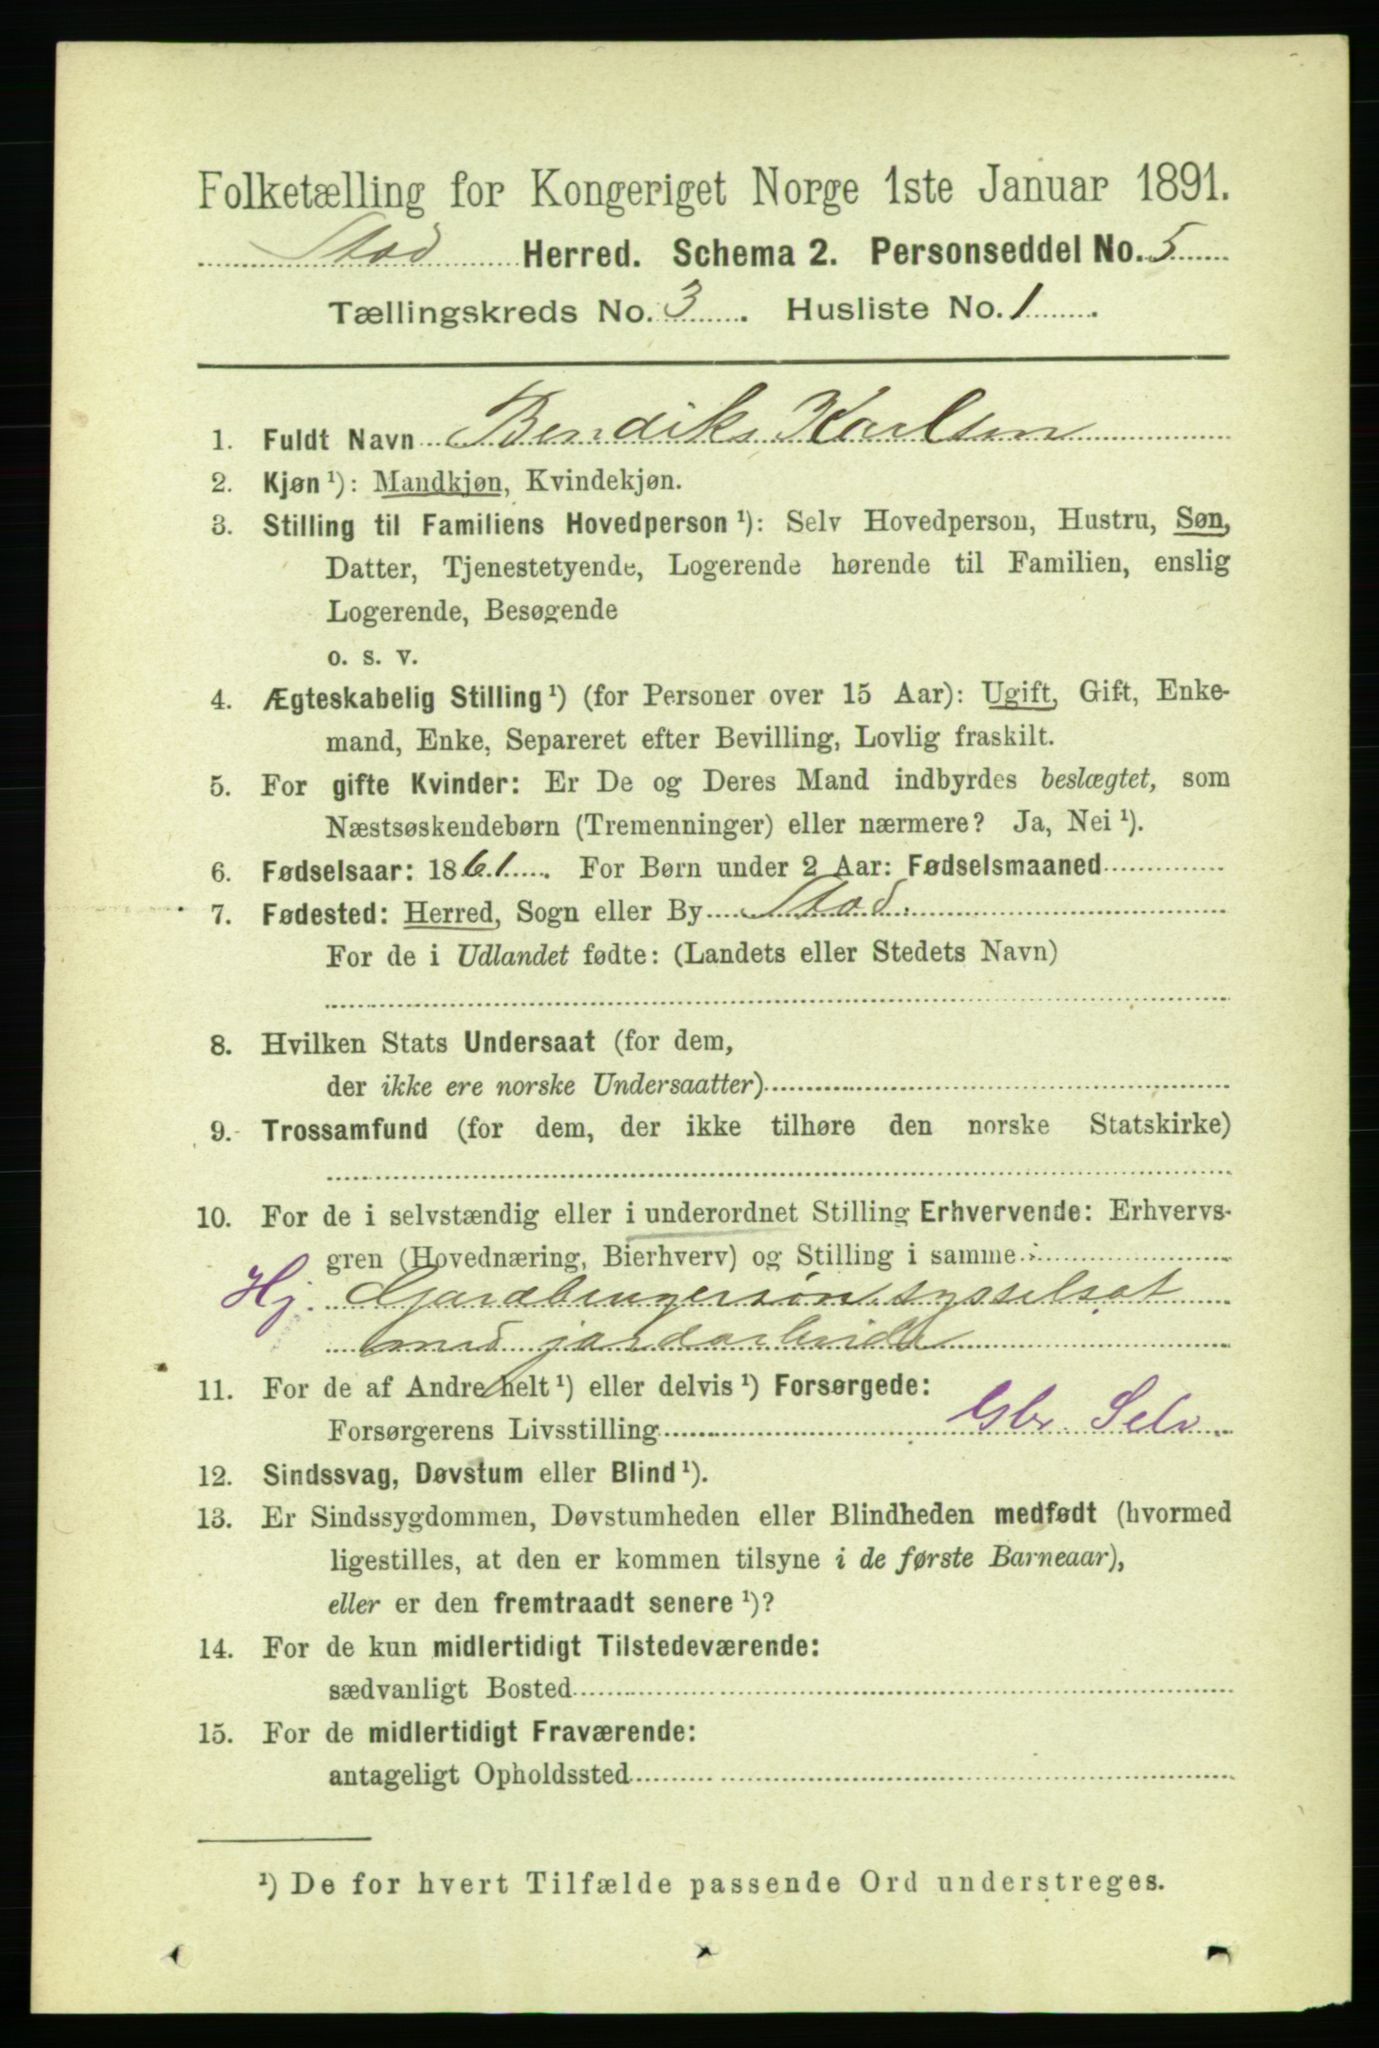 Folketælling for Kongeriget Norge 1ste Januar 1891.
Stod Herred. Schema 2. Personseddel No. 5
Tællingskreds No. 3. Husliste No. 1.
1. Fuldt Navn Bendiks Karlsen
2. Kjøn ¹): Mandkjøn, Kvindekjøn.
3. Stilling til Familiens Hovedperson ¹): Selv Hovedperson, Hustru, Søn,
Datter, Tjenestetyende, Logerende hørende til Familien, enslig
Logerende, Besøgende
o. s. v.
4. Ægteskabelig Stilling ¹) (for Personer over 15 Aar): Ugift, Gift, Enke-
mand, Enke, Separeret efter Bevilling, Lovlig fraskilt.
5. For gifte Kvinder: Er De og Deres Mand indbyrdes beslægtet, som
Næstsøskendebørn (Tremenninger) eller nærmere? Ja, Nei ¹).
6. Fødselsaar: 1861. For Børn under 2 Aar: Fødselsmaaned
7. Fødested: Herred, Sogn eller By Stod.
For de i Udlandet fødte: (Landets eller Stedets Navn)
8. Hvilken Stats Undersaat (for dem,
der ikke ere norske Undersaatter)
9. Trossamfund (for dem, der ikke tilhøre den norske Statskirke)
10. For de i selvstændig eller i underordnet Stilling Erhvervende: Erhvervs-
gren (Hovednæring, Bierhverv) og Stilling i samme :
Hj. Gaardbrugersøn sysselsat
med jordarbeide
11. For de af Andre helt ¹) eller delvis ¹) Forsørgede:
Forsørgerens Livsstilling Gbr. Selv.
12. Sindssvag, Døvstum eller Blind ¹).
13. Er Sindssygdommen, Døvstumheden eller Blindheden medfødt (hvormed
ligestilles, at den er kommen tilsyne i de første Barneaar),
eller er den fremtraadt senere ¹)?
14. For de kun midlertidigt Tilstedeværende:
sædvanligt Bosted
15. For de midlertidigt Fraværende:
antageligt Opholdssted
¹) De for hvert Tilfælde passende Ord understreges.